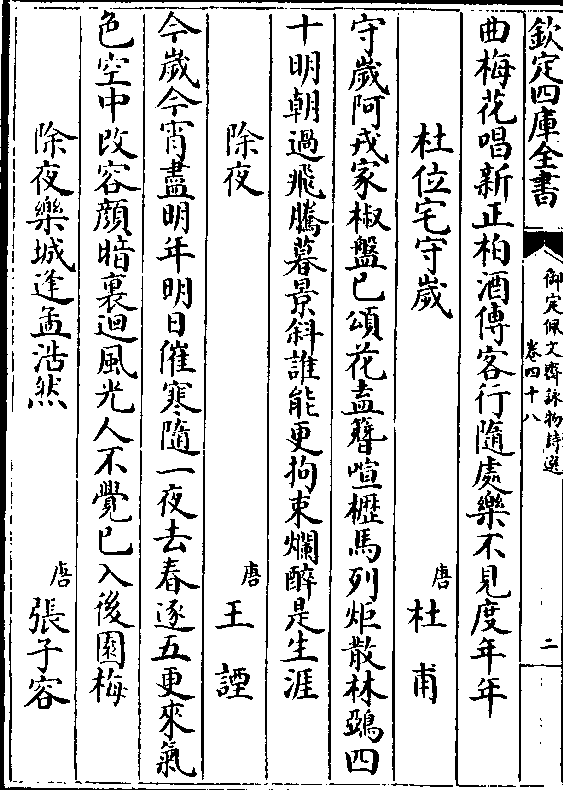 欽定四庫全書
御定佩文齋詠物詩選
卷四十八
二
曲梅花唱新正柏酒傳客行隨處樂不見度年年
杜位宅守歲
唐
杜甫
守歲阿戎家椒盤已頌花盍簪喧櫪馬列炬散林鵶四
十明朝過飛騰暮景斜誰能更拘束爛醉是生涯
除夜
唐
王諲
今歲今宵盡明年明日催寒隨一夜去春逐五更來氣
色空中改容顔暗裏迴風光人不覺已入後園梅
除夜樂城逢孟浩然
唐
張子容